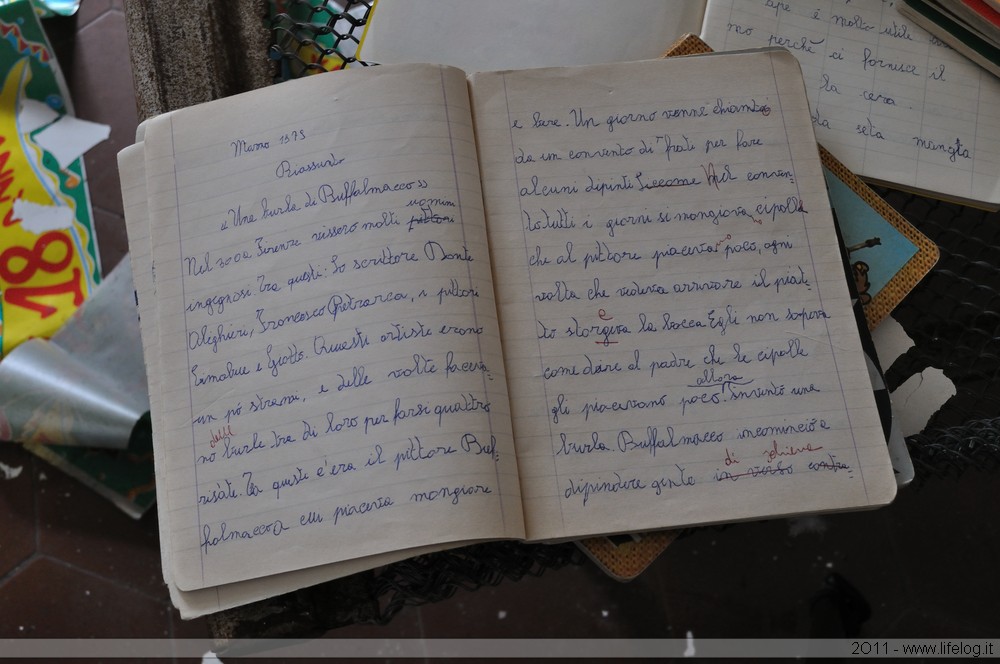 Marzo 1979
Riassunto
"Una burla di Buffalmacco"
Nel 300 a Firenze vissero molti uomini pittori
ingegnosi. Tra questi: Lo scrittore Dante
Aleghieri, Francesco Petrarca, i pittori
Cimabue e Giotto. Questi artisti erano
un pò strani, e delle volte faceva-
no delle burle tra di loro per farsi quattro
risate. Tra queste c'era il pittore Buf-
falmacco a cui piaceva mangiare
e bere. Un giorno venne chiamato
da un convento di frati per fare
alcuni dipinti. Siccome nel conven-
to tutti i giorni si mangiava cipolla
che al pittore piaceva poco, ogni
volta che vedeva arrivare il piat-
to storgeva la bocca. Egli non sapeva
come dire al padre che le cipolle
gli piacevano poco. allora inventò una
burla. Buffalmacco incominciò a
dipindere gente di schiena in verso contra-
ape è molto utile
mo perchè ci fornisce il
la cera.
seta mangia
18
2011 - www.lifelog.it